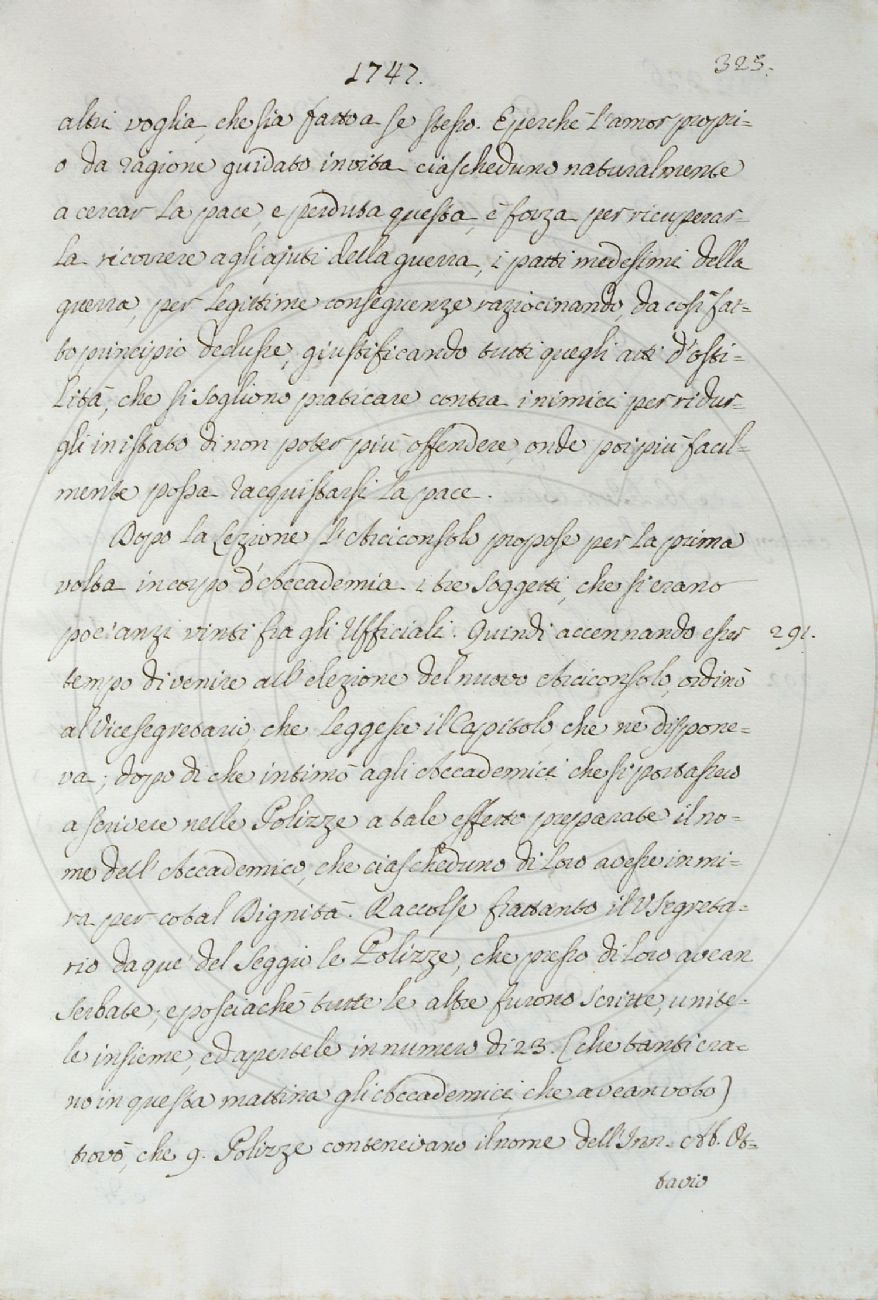 1747.
325.
altri voglia, che sia fatto a se stesso. E perchè l'amor propri=
o da ragione guidato invita ciascheduno naturalmente
a cercar la pace e perduta questa, è forza per ricuperar=
la ricorrere agli ajuti della guerra, i patti medesimi della
guerra, per legittime conseguenze raziocinando, da così fat=
to principio dedusse, giustificando tutti quegli atti d'osti=
lità, che si sogliono praticare contra i nimici per ridur=
gli in istato di non poter più offendere, onde poi più facil=
mente possa racquistarsi la pace.
Dopo la Lezione l'Arciconsolo propose per la prima
volta in corpo d'Accademia i tre Soggetti, che si erano
pocanzi vinti fra gli Ufficiali. Quindi accennando esser
291.
tempo di venire all'elezione del nuovo Arciconsolo, ordinò
al Vicesegretario, che leggesse il Capitolo, che ne dispone=
va; dopo di che intimò agli Accademici che si portassero
a scrivere nelle Polizze a tale effetto preparate il no=
me dell'Accademico, che ciascheduno di loro avesse in mi=
ra per cotal Dignità. Raccolse frattanto il VSegreta=
rio da que' del Seggio le Polizze, che presso di loro avean
serbate; e posciachè tutte le altre furono scritte, unite=
le insieme, ed apertele in numero di 23. (che tanti era=
no in questa mattina gli Accademici, che avean voto)
trovò, che 9. Polizze contenevano il nome dell'Inn. Ab. Ot=
tavio